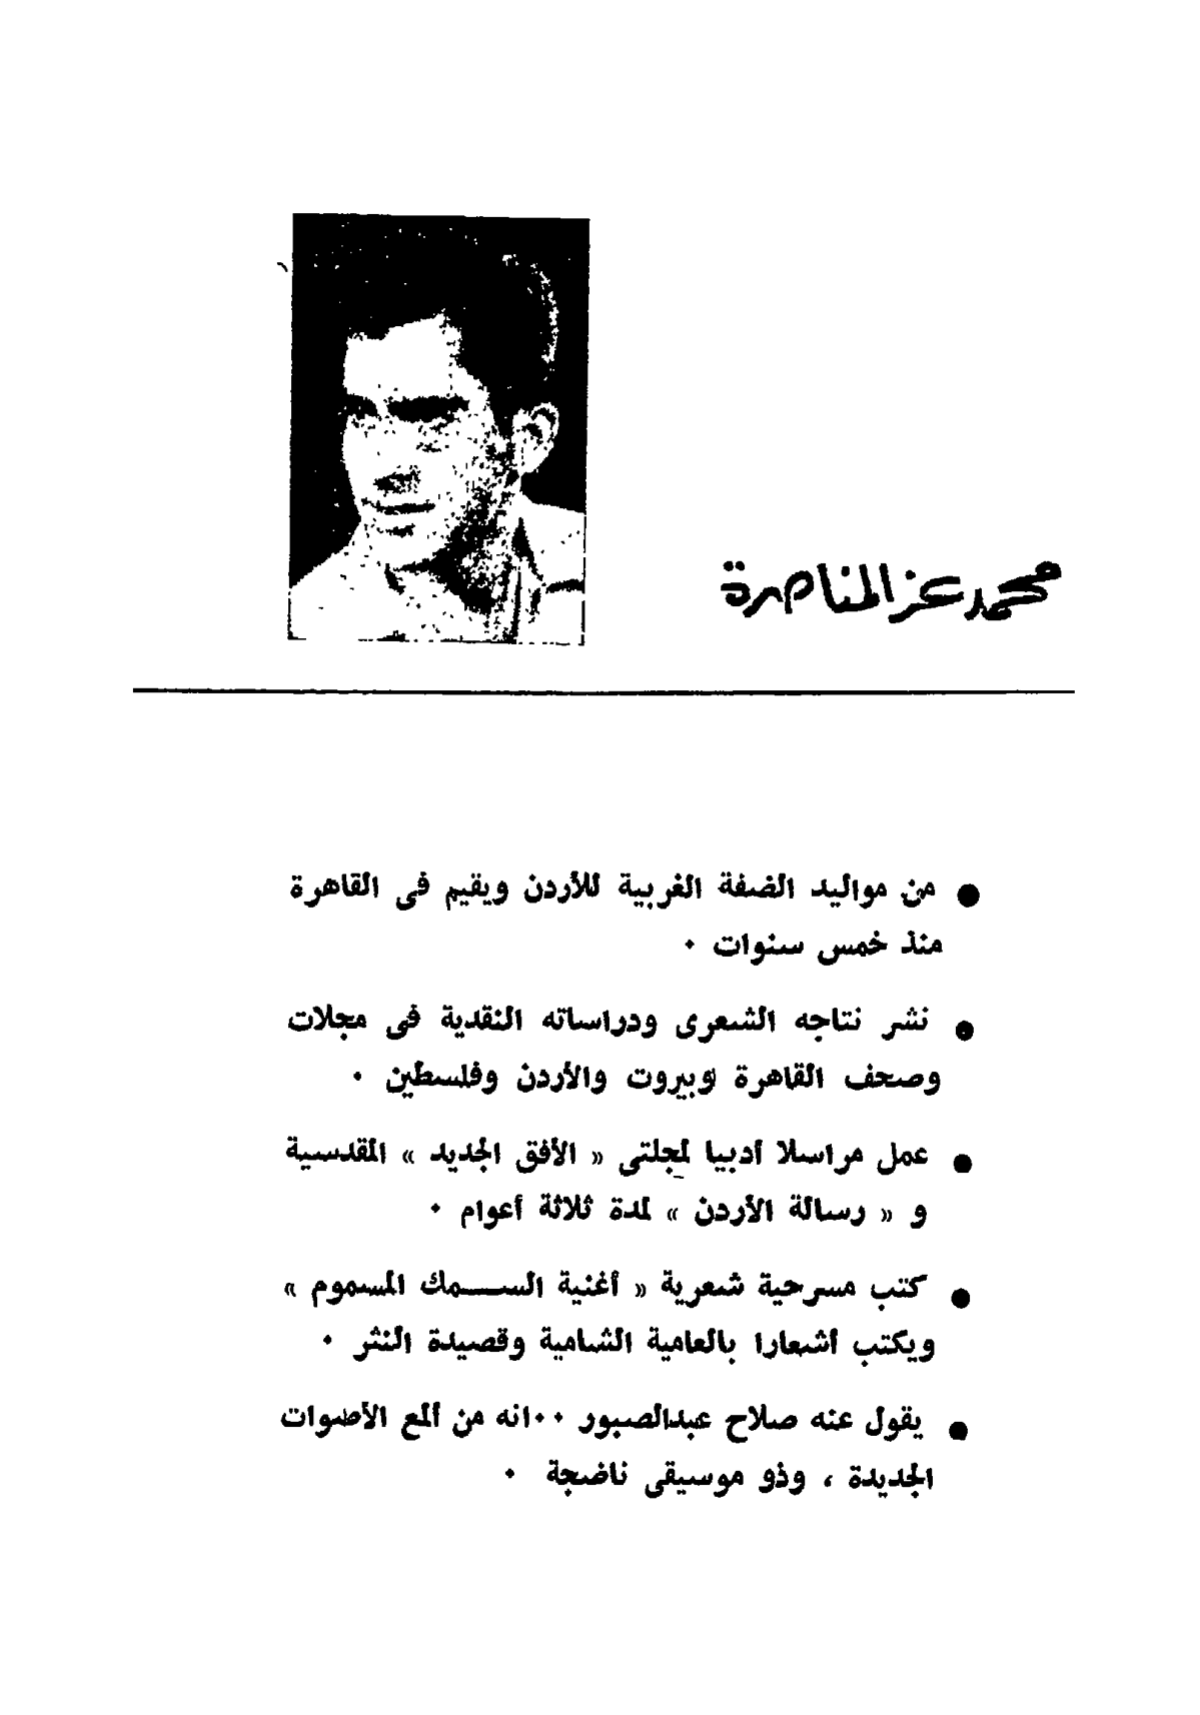 محمد عز المناصرة
● من مواليد الضفة الغربية للأردن ويقيم فى القاهرة
منذ خمس سنوات ٠
● نشر نتاجه الشعرى ودراساته النقدية فى مجلات
وصحف القاهرة وبيروت والأردن وفلسطين ٠
● عمل مراسلا أدبيا لمجلتى « الأفق الجديد » المقدسية
و « رسالة الأردن » لمدة ثلاثة أعوام ٠
● كتب مسرحية شعرية « أغنية الســـمك المسموم »
ويكتب أشعارا بالعامية الشامية وقصيدة النثر ٠
● يقول عنه صلاح عبدالصبور ٠٠انه من ألمع الأصوات
الجديدة ، وذو موسيقى ناضجة ٠